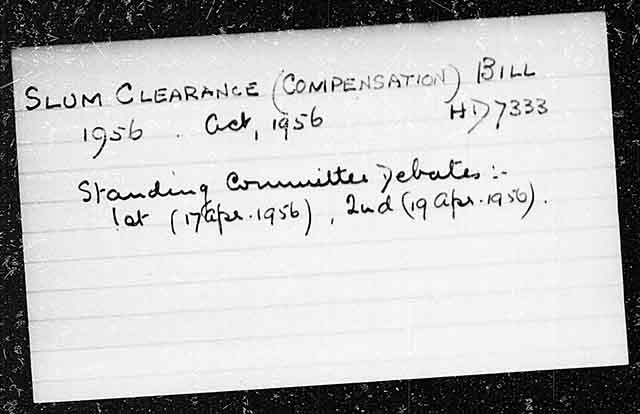 SLUM CLEARANCE (COMPENSATION) BILL
1956. Act, 1956 HD7333
Standing Committee Debates :-
1st (17 Apr. 1956), 2nd (19 Apr. 1956).